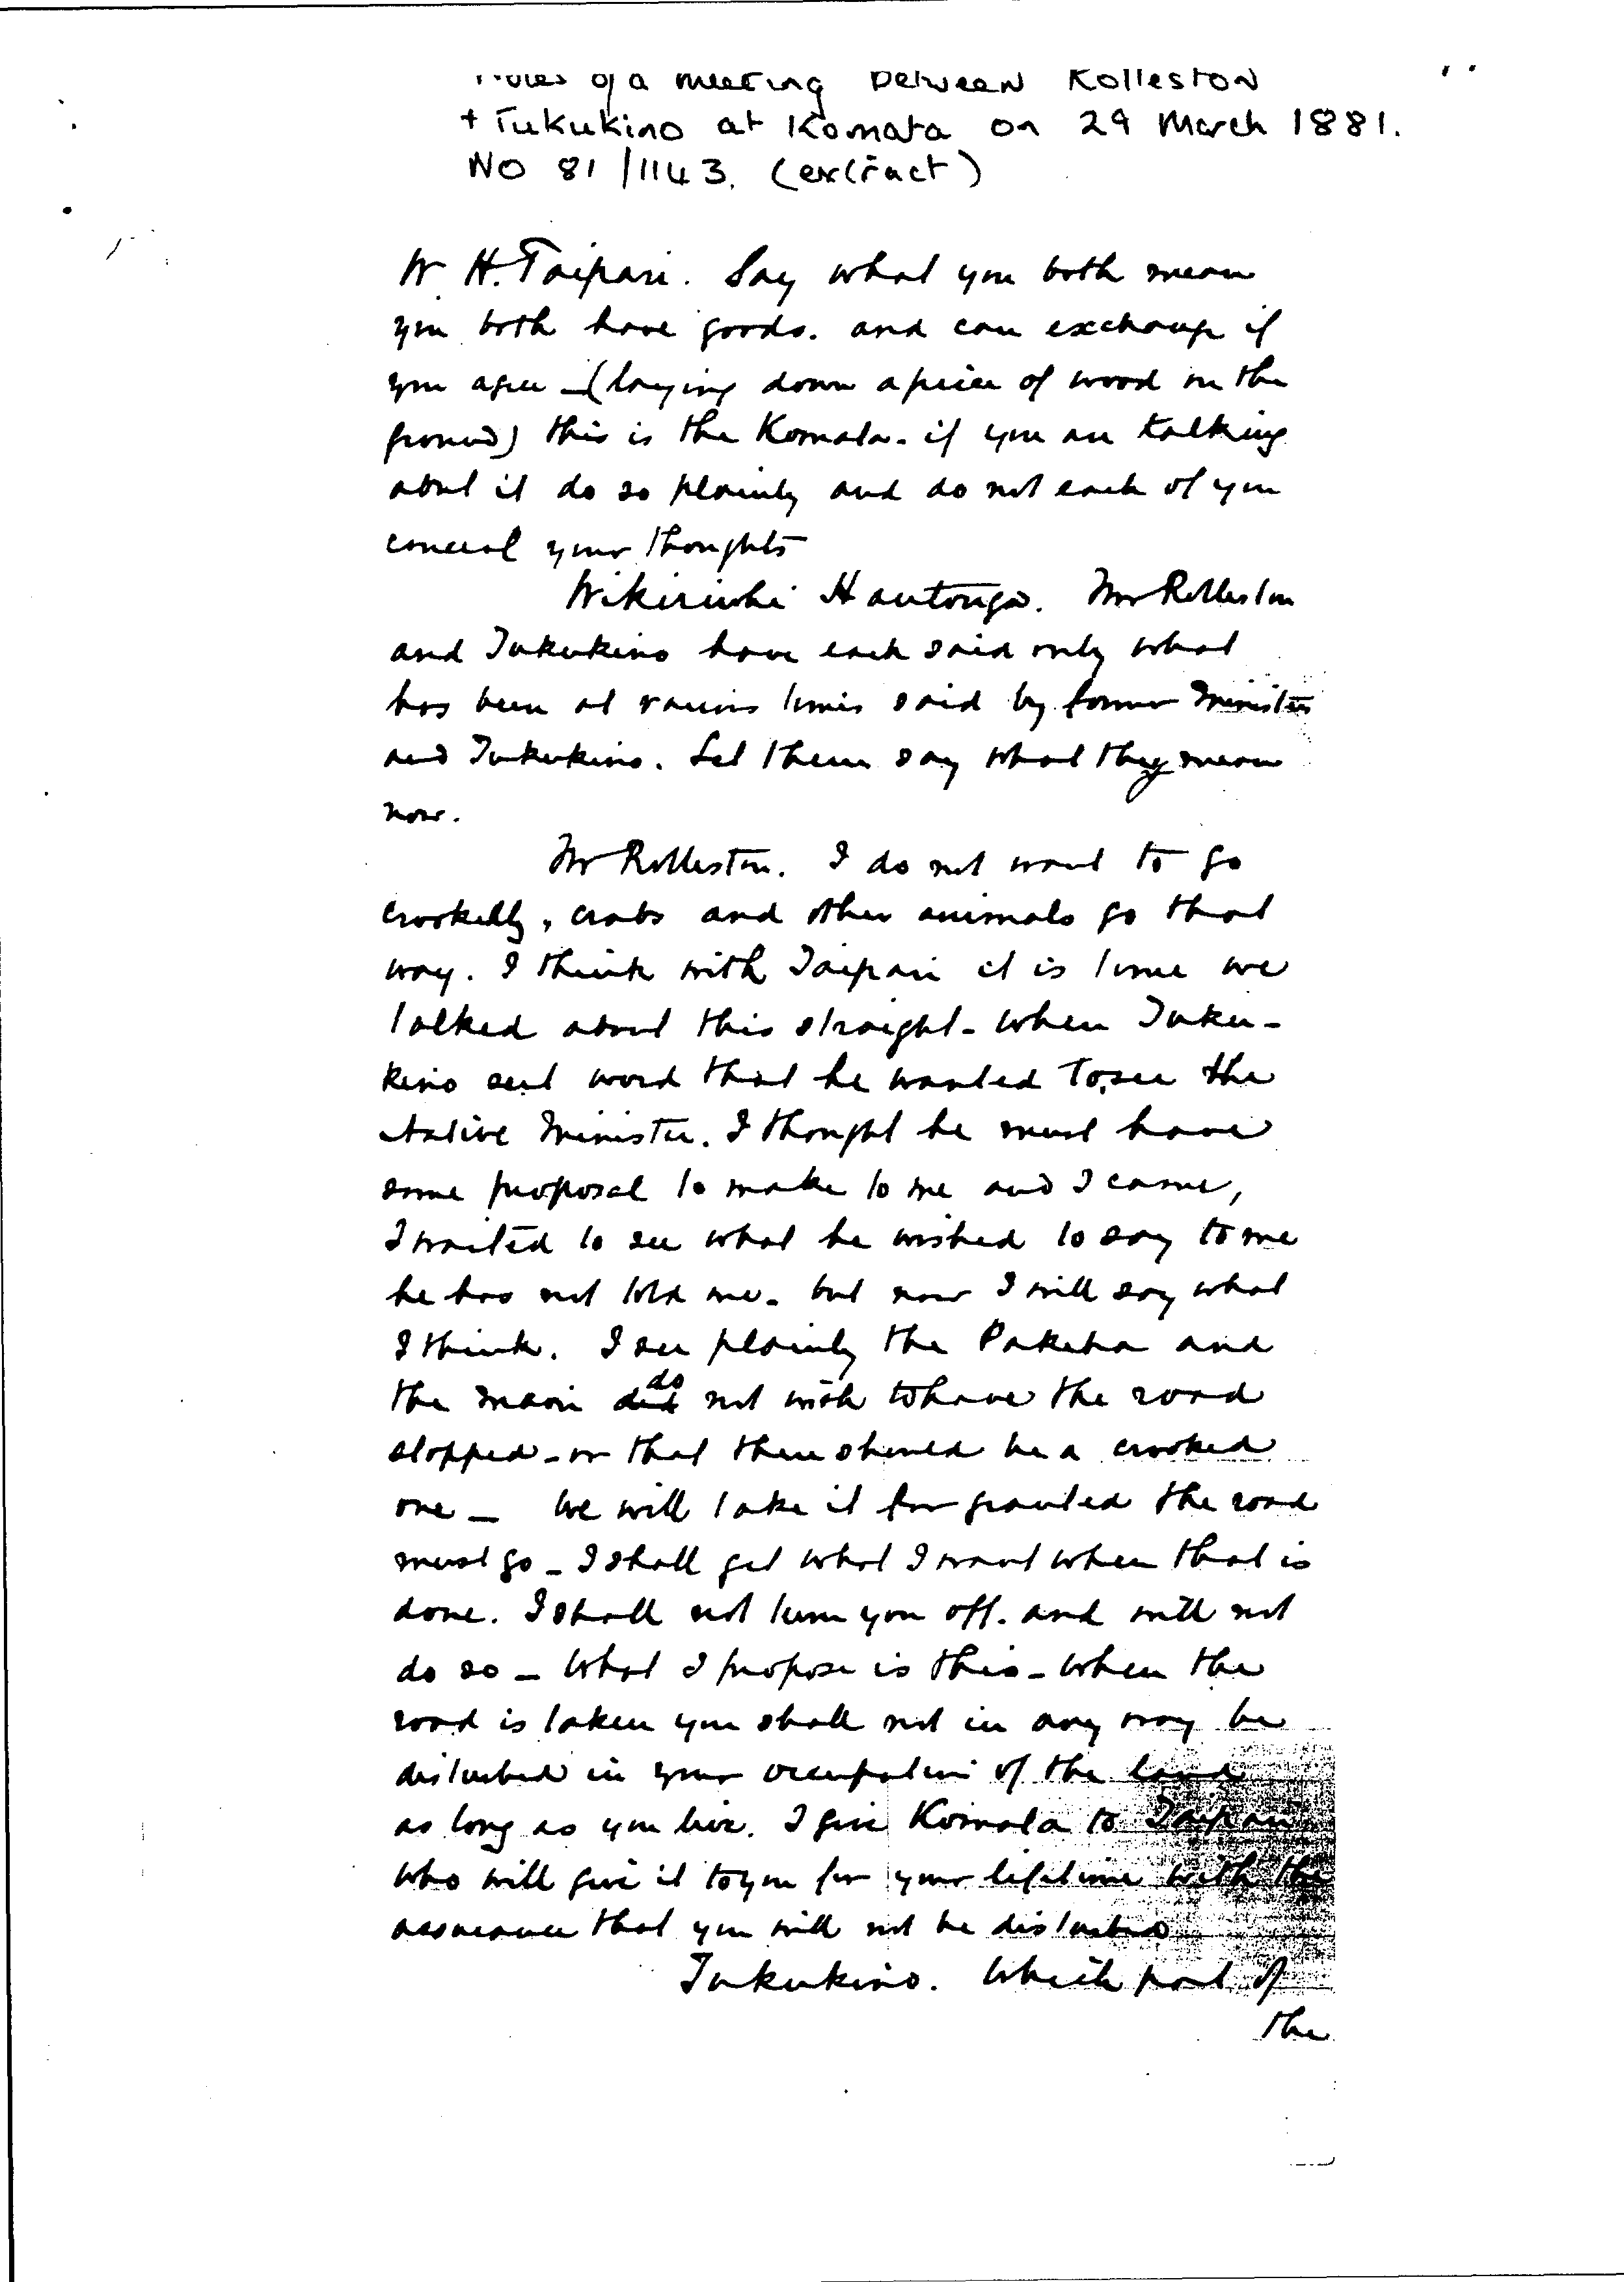 Notes of a meeting between Rolleston
+ Tukukino at Komata on 29 March 1881.
NO 81/1143. (extract)
W. H. Taipari. Say what you both mean
you both have goods. and can exchange if
you agree - (laying down a piece of wood on the
ground) this is the Komata. if you are talking
about it do so plainly and do not each of you
conceal your thoughts
Wikiriwhi Hautonga. Mr Rolleston
and Tukukino have each said only what
has been at various times said by former Ministers
and Tukukino. Let them say what they mean
now.
Mr Rolleston. I do not want to go
crookedly, crabs and other animals go that
way. I think with Taipari it is time we
talked about this straight - when Tuku-
kino sent word that he wanted to see the
Native Minister. I thought he must have
some proposal to make to me and I came,
I waited to see what he wished to say to me
he has not told me. but now I will say what
I think. I see plainly the Pakeha and
the Maori did do not wish to have the road
stopped - or that there should be a crooked
one - We will take it for granted the road
must go - I shall get what I want when that is
done. I shall not turn you off. and will not
do so - What I propose is this - When the
road is taken you shall not in any way be
disturbed in your occupation of the land
as long as you live. I give Komata to Taipari
who will give it to you for your lifetime with the
assurance that you will not be disturbed
Tukukino. Which part of
the